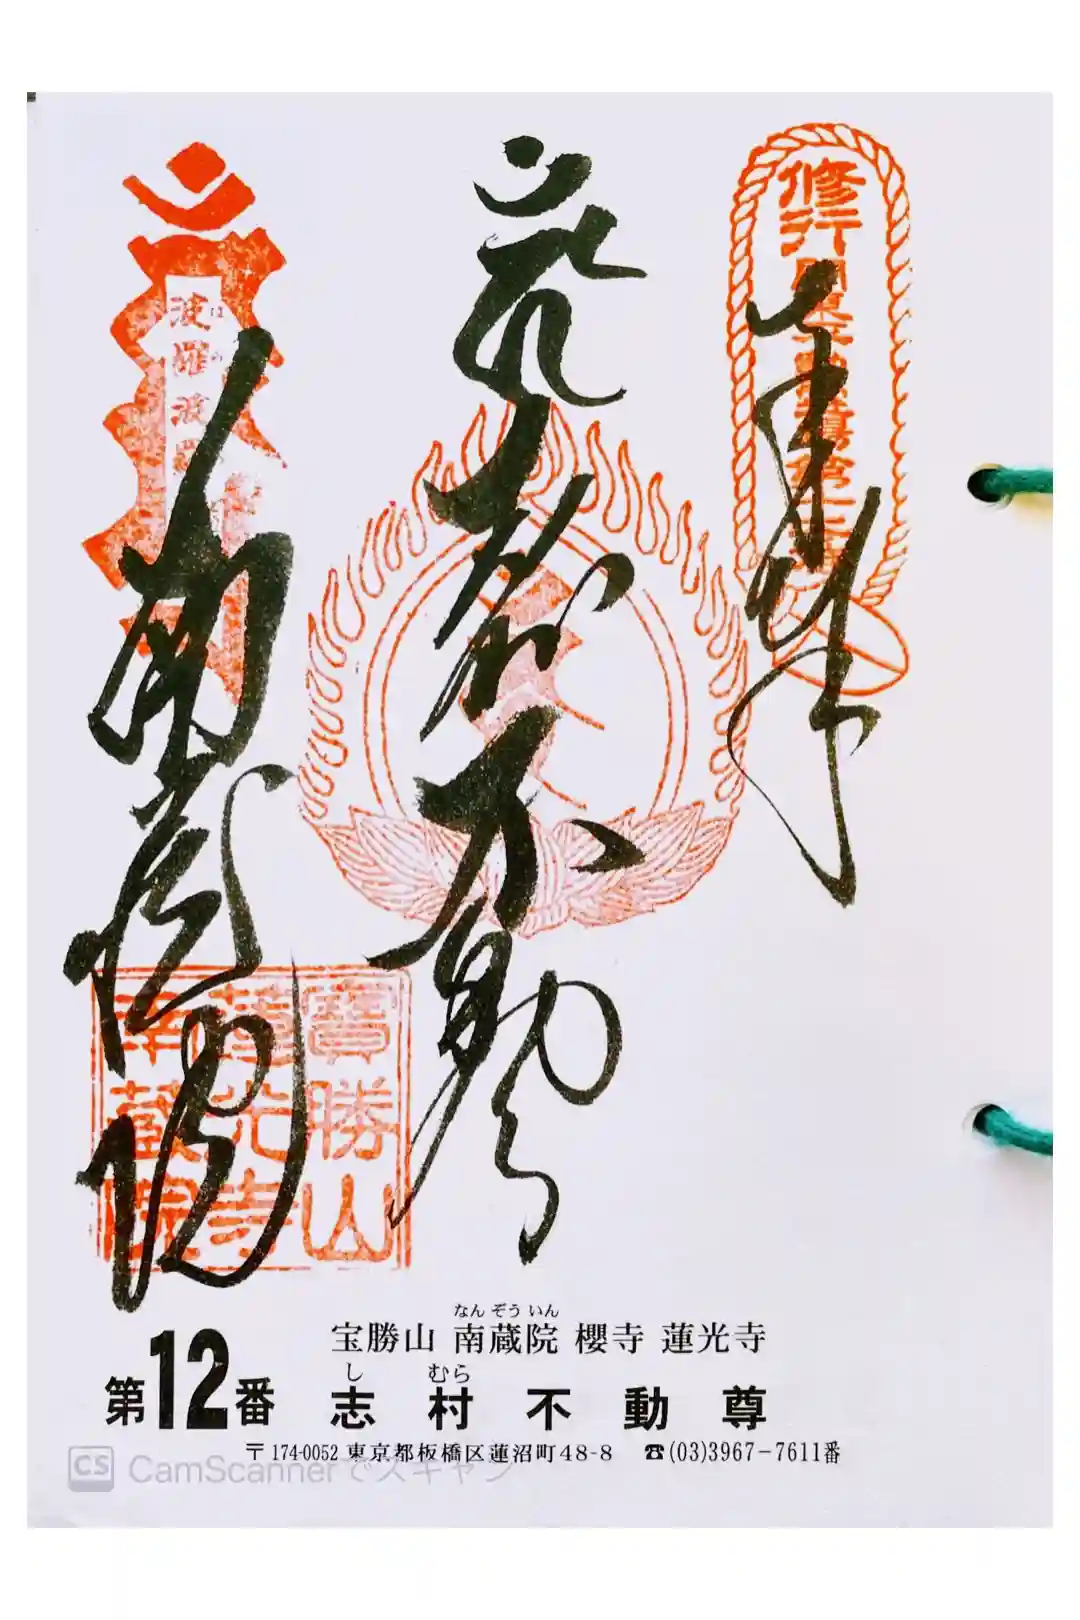 修行関東三十六不動霊場第十二番
奉拝
志村不動
波羅波羅
南蔵院
寶勝山
蓮光寺
南蔵院
なん ぞう いん
宝勝山 南蔵院 櫻寺 蓮光寺
し むら
第12番 志村不動尊
〒174-0052 東京都板橋区蓮沼町48-8 ☎(03)3967-7611番
CS CamScannerでスキャン